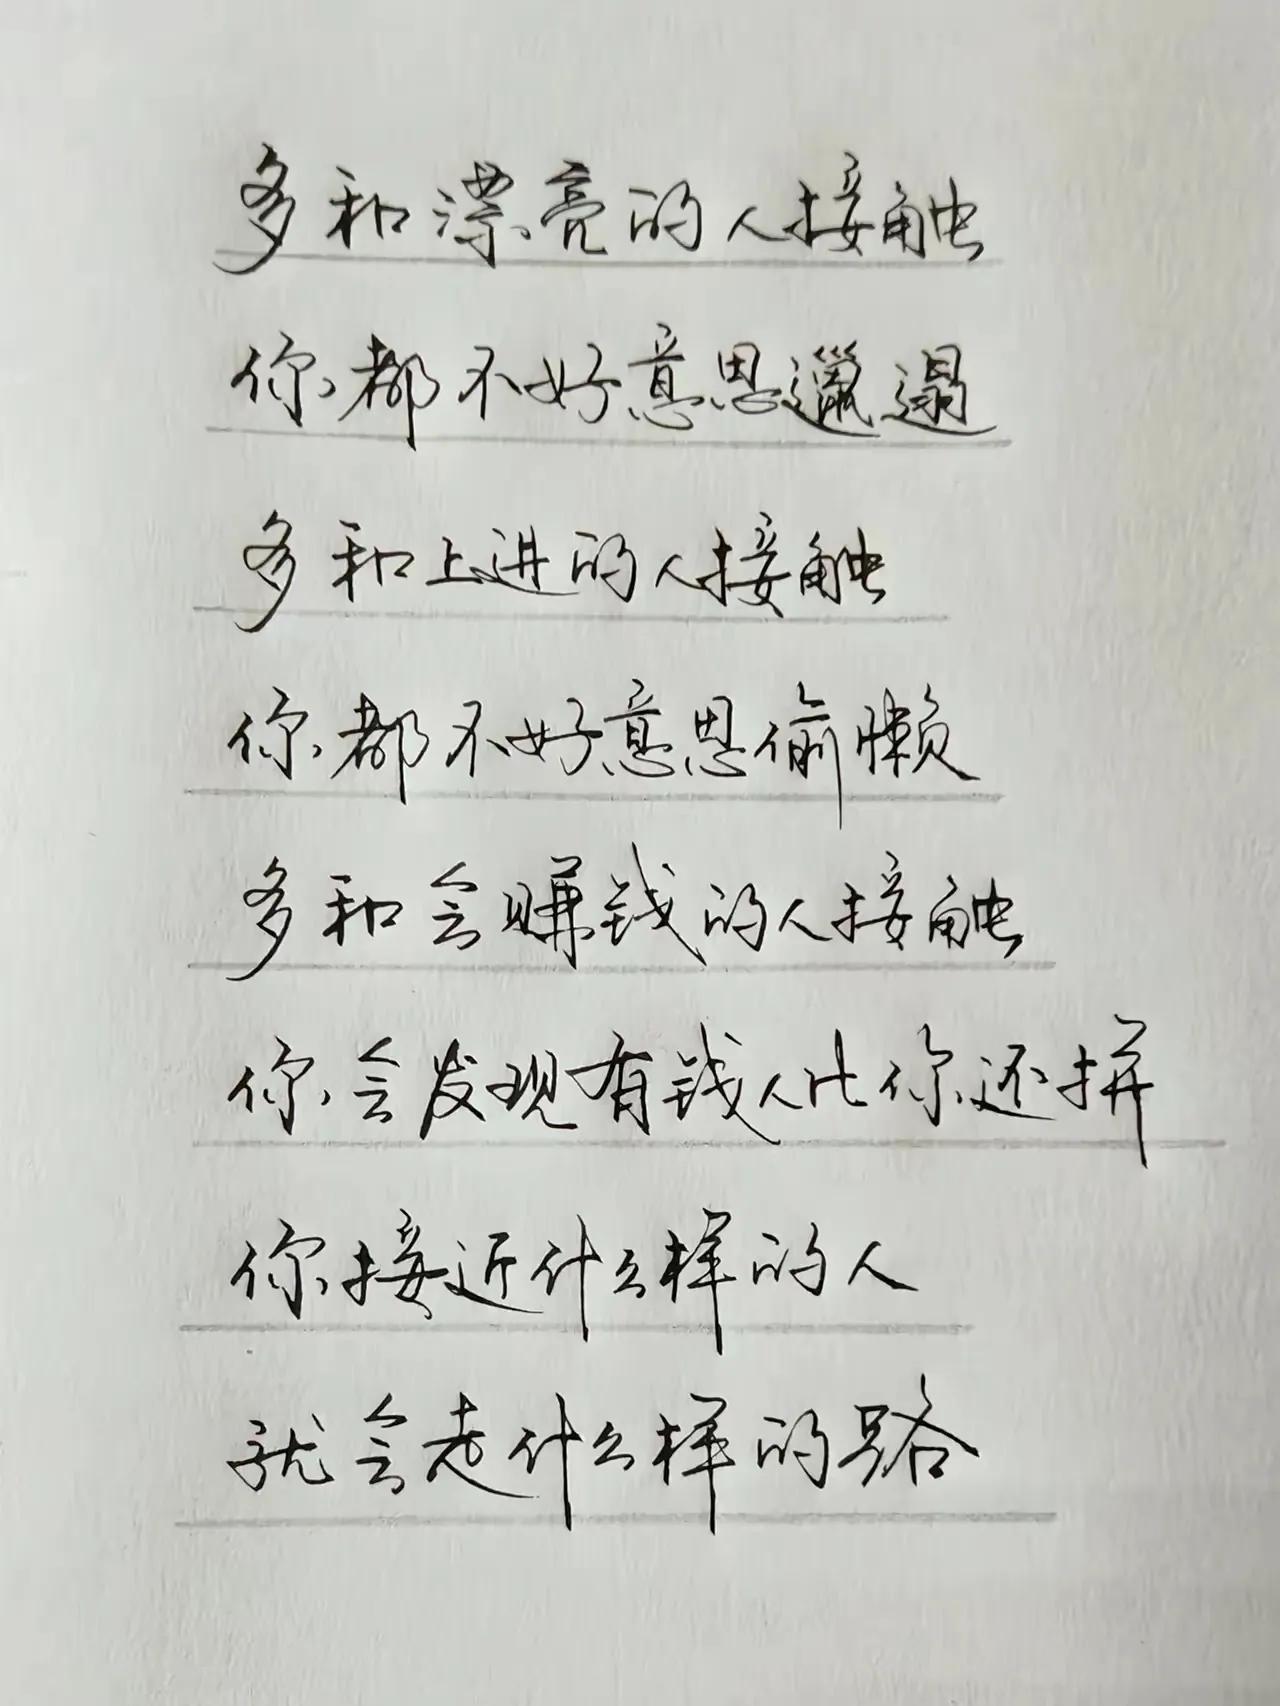 多和漂亮的人接触
你都不好意思邋遢
多和上进的人接触
你都不好意思偷懒
多和会赚钱的人接触
你会发现有钱人比你还拼
你接近什么样的人
就会走什么样的路